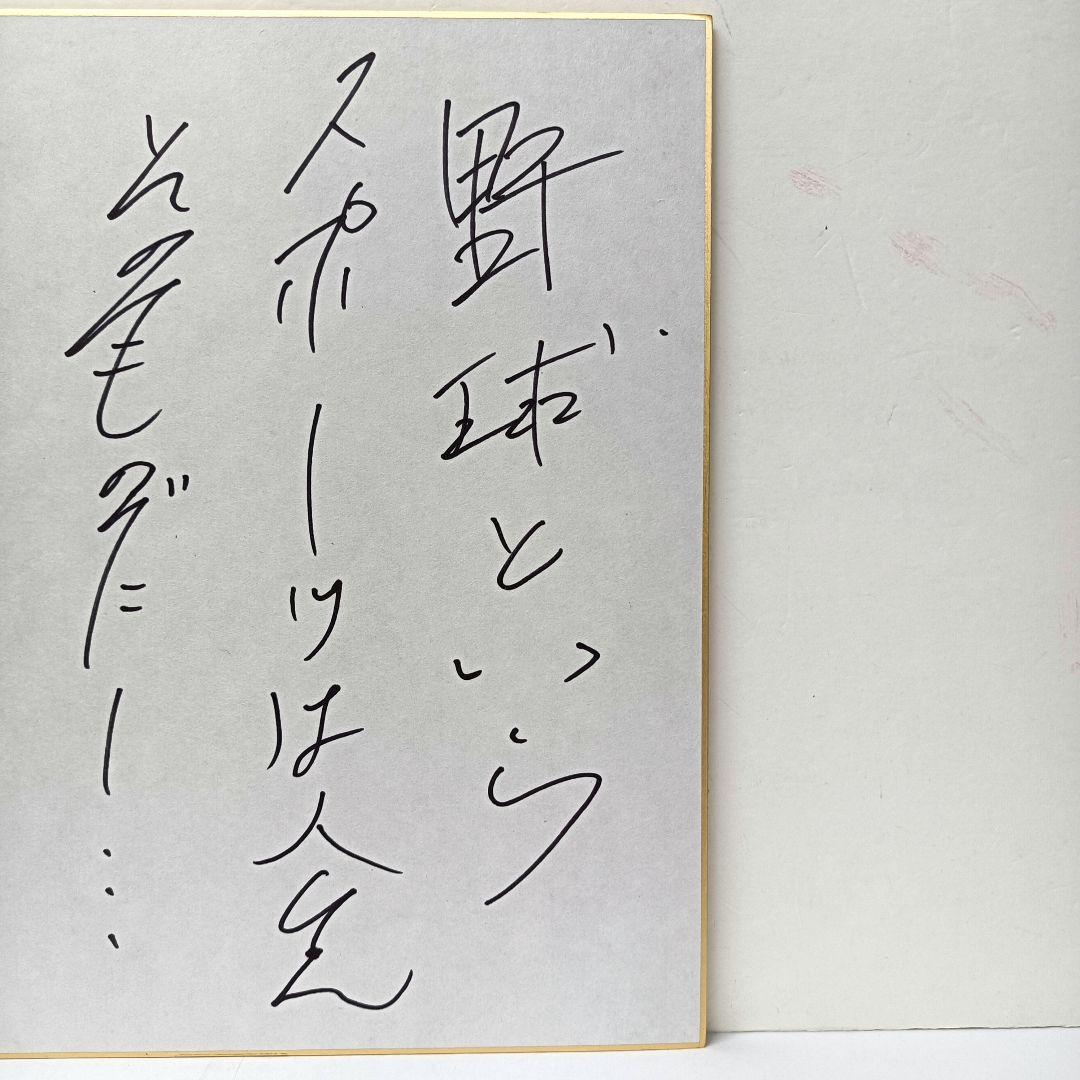 野球という
スポーツは人生
そのものだー…